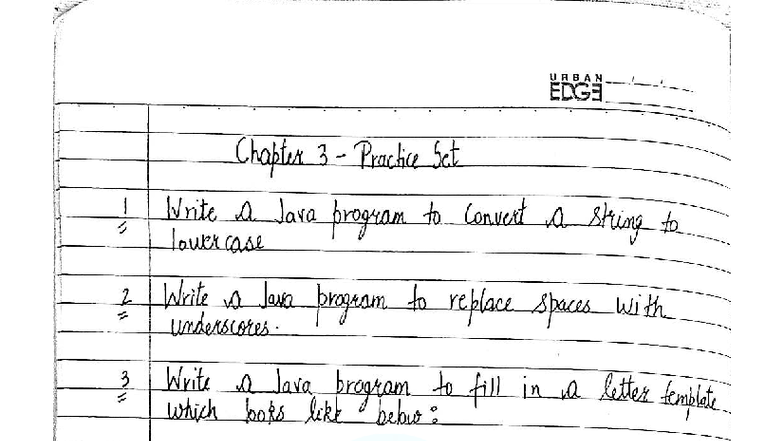 URBAN
EDGE
Chapter 3 - Practice Set
1 Write a Java program to convert a string to
lowercase
2 Write a Java program to replace spaces with
underscores.
3 Write a Java program to fill in a letter template
which looks like below: